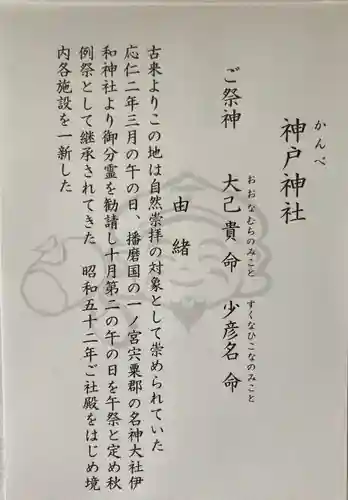 かんべ
神戸神社
ご祭神　大己貴命　少彦名命
おおなむちのみこと　すくなひこなのみこと
由緒
古来よりこの地は自然崇拝の対象として崇められていた
応仁二年三月の午の日、播磨国の一ノ宮宍粟郡の名神大社伊
和神社より御分霊を勧請し十月第二の午の日を午祭と定め秋
例祭として継承されてきた　昭和五十二年ご社殿をはじめ境
内各施設を一新した